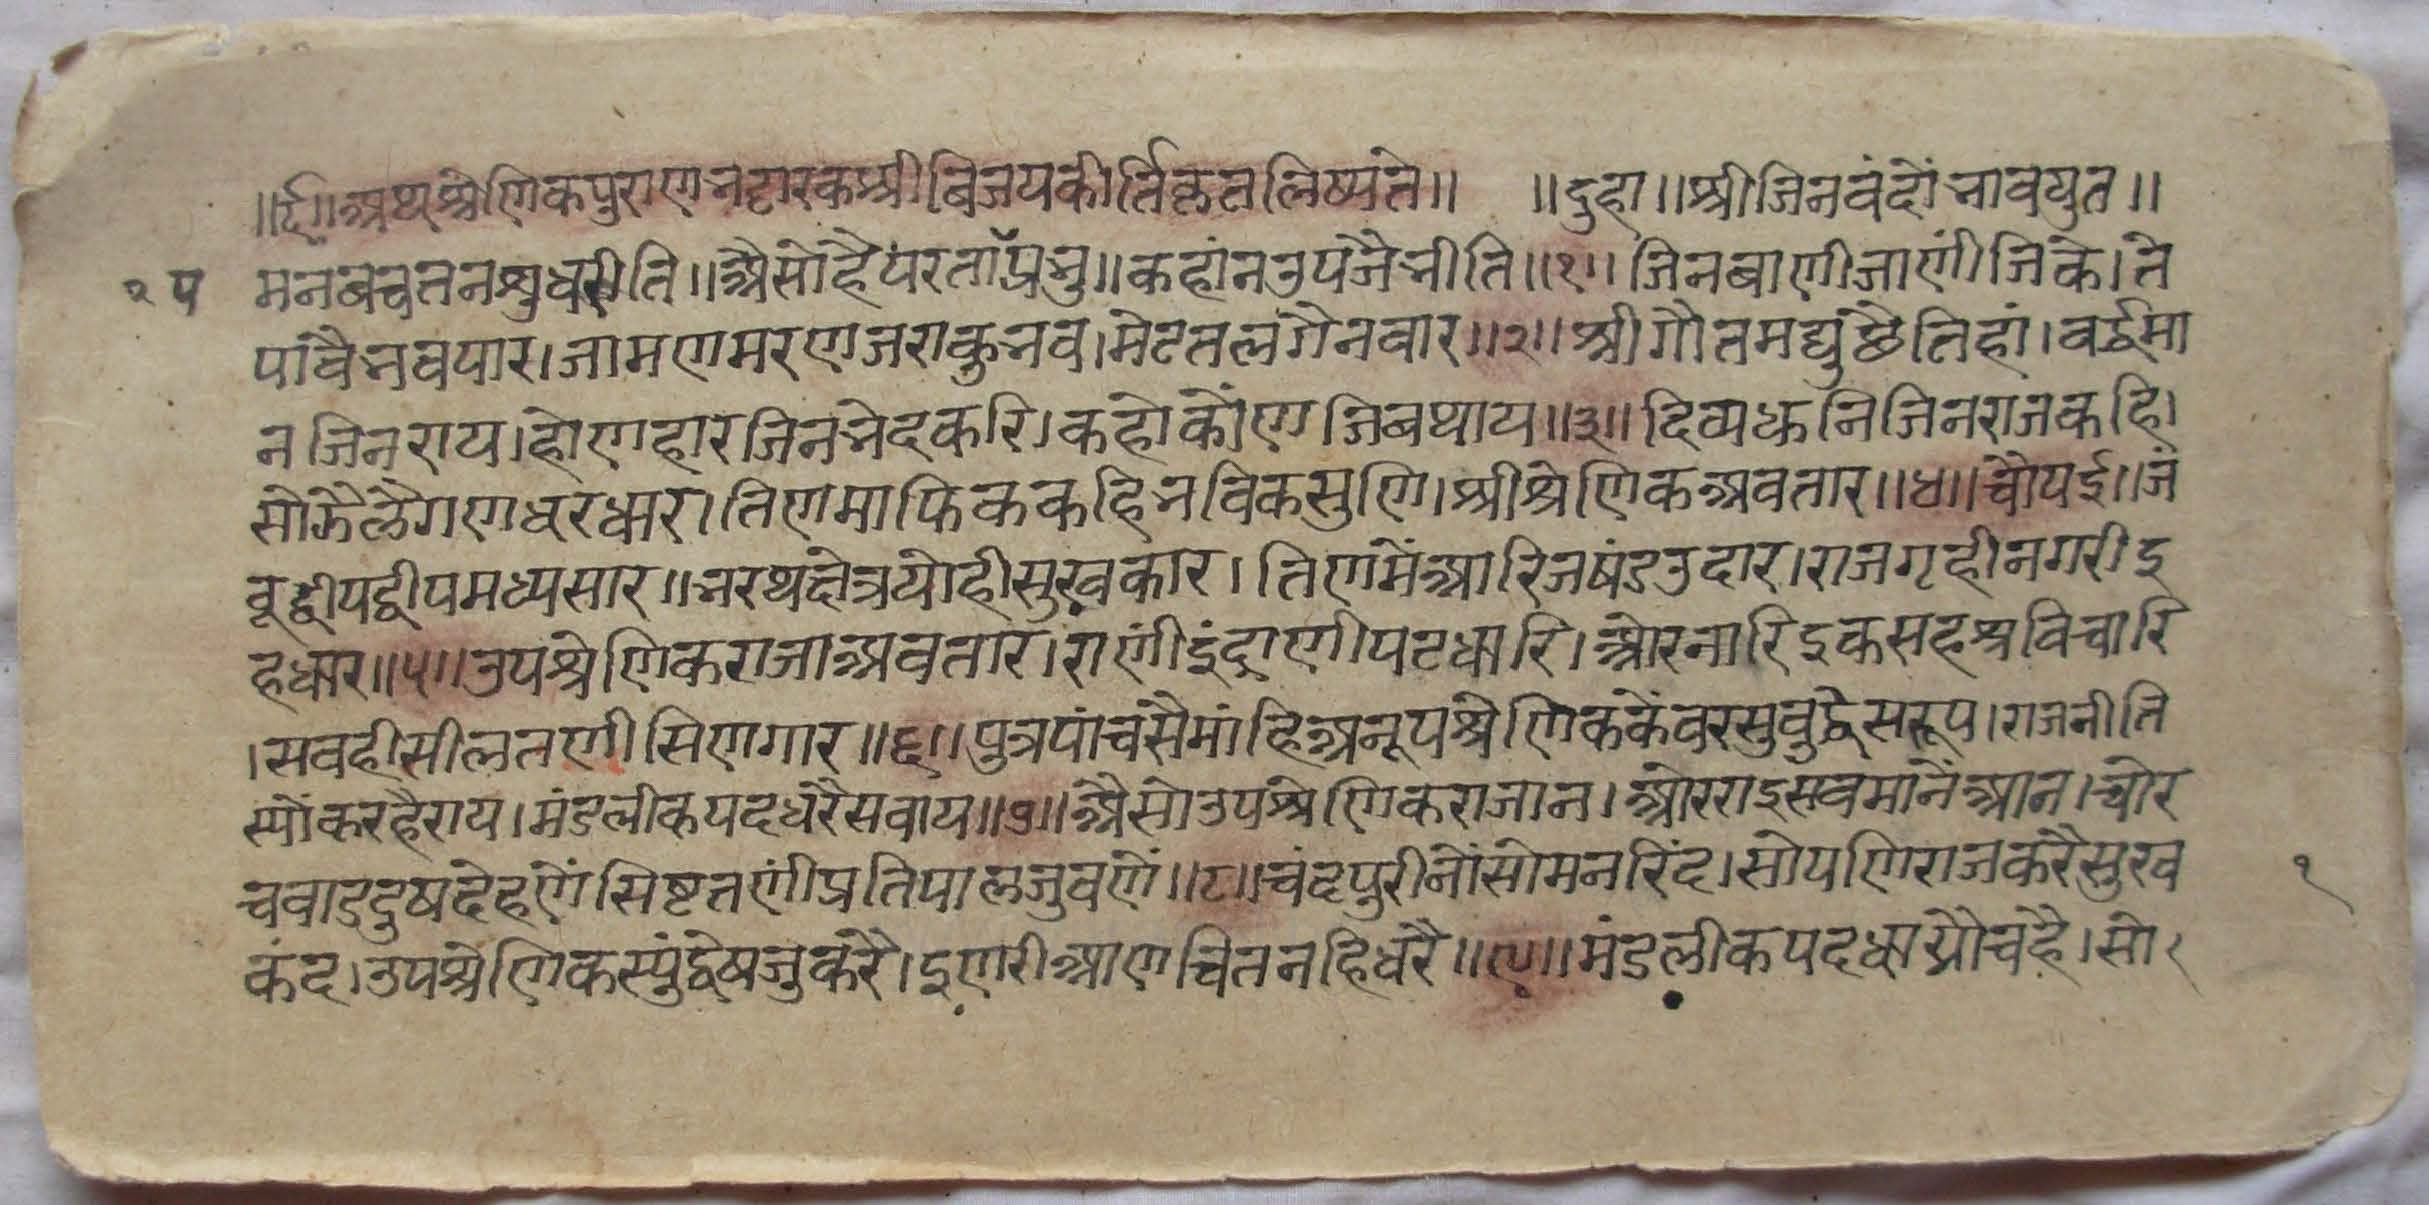 ॥र्द०॥अथश्रेणिकपुराणभट्टारकश्रीबिजयकीर्तिकृतलिष्यते॥ ॥दुहा॥श्रीजिनवंदौंभावयुत॥
१प मनबचतनश्रुधरीति॥अैसोहैपरताॅप्रभु॥कहांनउपजैभीति॥१॥जिनबाणीजाणींजिके।ते
पांवैभवपार।जामणमरणजराकुभव।मेटतलगैनबार॥२॥श्रीगौतमद्युछैतिहां।वर्द्धमा
नजिनराय।होणहारजिनभेदकरि।कहोकोंणजिबथाय॥३॥दिव्यध्वनिजिनराजकहि।
सोफैलैगणधरधार।तिणमाफिककहिभविकसुणि।श्रीश्रेणिकअवतार॥४॥चौपई॥जं
बूद्वीपद्वीपमध्यसार॥भरथक्षेत्रयोहीसुखकार।तिणमेंआरिजषंडउदार।राजगृहीनगरीइ
हधार॥५॥उपश्रेणिकराजाअवतार।राणींइंद्राणीपटधारि।ओरनारिइकसहश्रविचारि
।सवहीसीलतणीसिणगार॥६॥पुत्रपांचसैमांहिअनूपश्रेणिककंवरसुबुद्धिसरूप।राजनीति
स्यौंकरहैराय।मंडलीकपदधरैसवाय॥७॥अैसोउपश्रेणिकराजान।ओरराइसवमानेंआन।चोर
चवाडदुषदेहणेंसिष्टतणींप्रतिपालजुवणें॥८॥चंदपुरीनोंसोमनरिंद।सोपणिराजकरैसुख १
कंद।उपश्रेणिकस्युंद्वेषजुकरै।इणरीआणचितनहिधरै॥९॥मंडलीकपदधार्यौचहै।सो